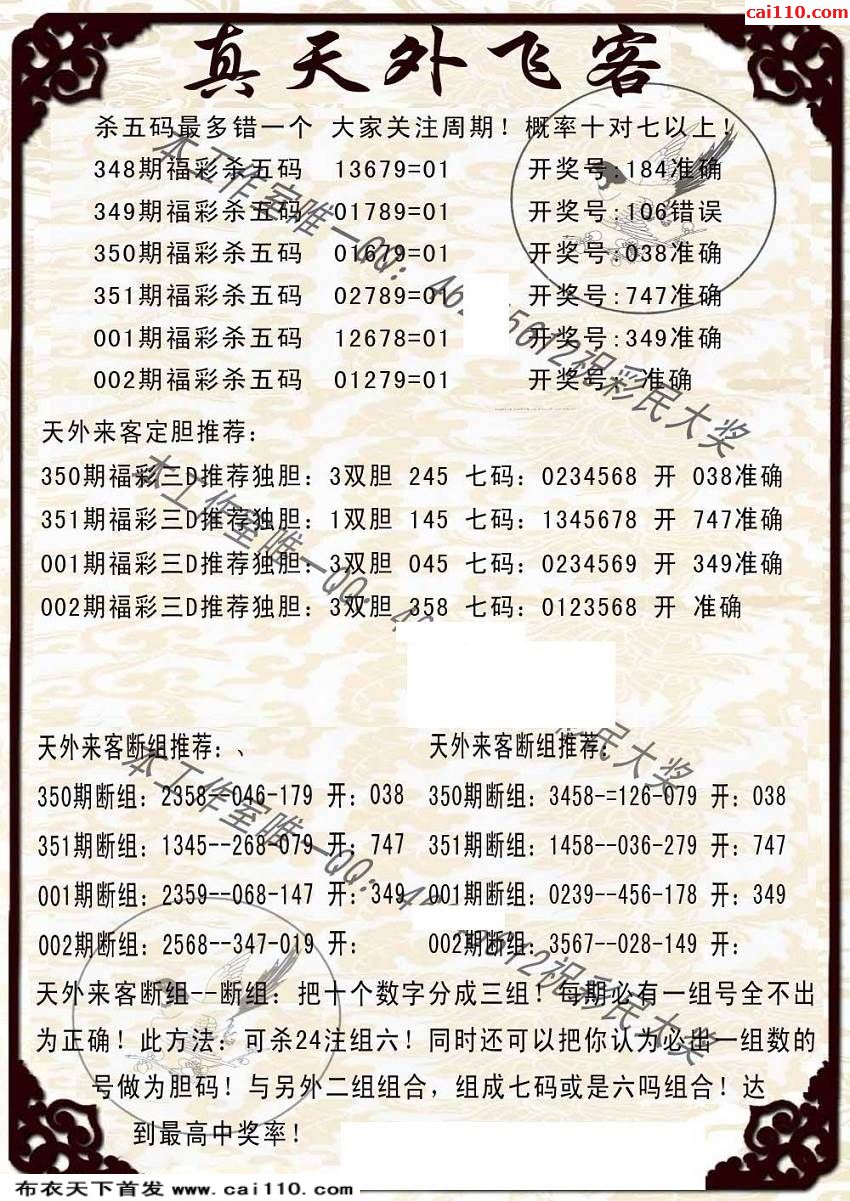 cai110.com
真天外飞客
杀五码最多错一个 大家关注周期！概率十对七以上！
348期福彩杀五码 13679=01 开奖号:184准确
349期福彩杀五码 01789=01 开奖号:106错误
350期福彩杀五码 01679=01 开奖号:038准确
351期福彩杀五码 02789=01 开奖号:747准确
001期福彩杀五码 12678=01 开奖号:349准确
002期福彩杀五码 01279=01 开奖号: 准确
天外来客定胆推荐：
350期福彩三D推荐独胆：3双胆 245 七码：0234568 开 038准确
351期福彩三D推荐独胆：1双胆 145 七码：1345678 开 747准确
001期福彩三D推荐独胆：3双胆 045 七码：0234569 开 349准确
002期福彩三D推荐独胆：3双胆 358 七码：0123568 开 准确
天外来客断组推荐：、 天外来客断组推荐：
350期断组：2358--046-179 开：038 350期断组：3458-=126-079 开：038
351期断组：1345--268-079 开：747 351期断组：1458--036-279 开：747
001期断组：2359--068-147 开：349 001期断组：0239--456-178 开：349
002期断组：2568--347-019 开： 002期断组：3567--028-149 开：
天外来客断组--断组：把十个数字分成三组！每期必有一组号全不出
为正确！此方法：可杀24注组六！同时还可以把你认为必出一组数的
号做为胆码！与另外二组组合，组成七码或是六吗组合！达
到最高中奖率！
本工作室唯一QQ：
祝彩民大奖
本工作室唯一QQ：
彩民大奖
本工作室唯一QQ：
祝彩民大奖
布衣天下首发 www.cai110.com